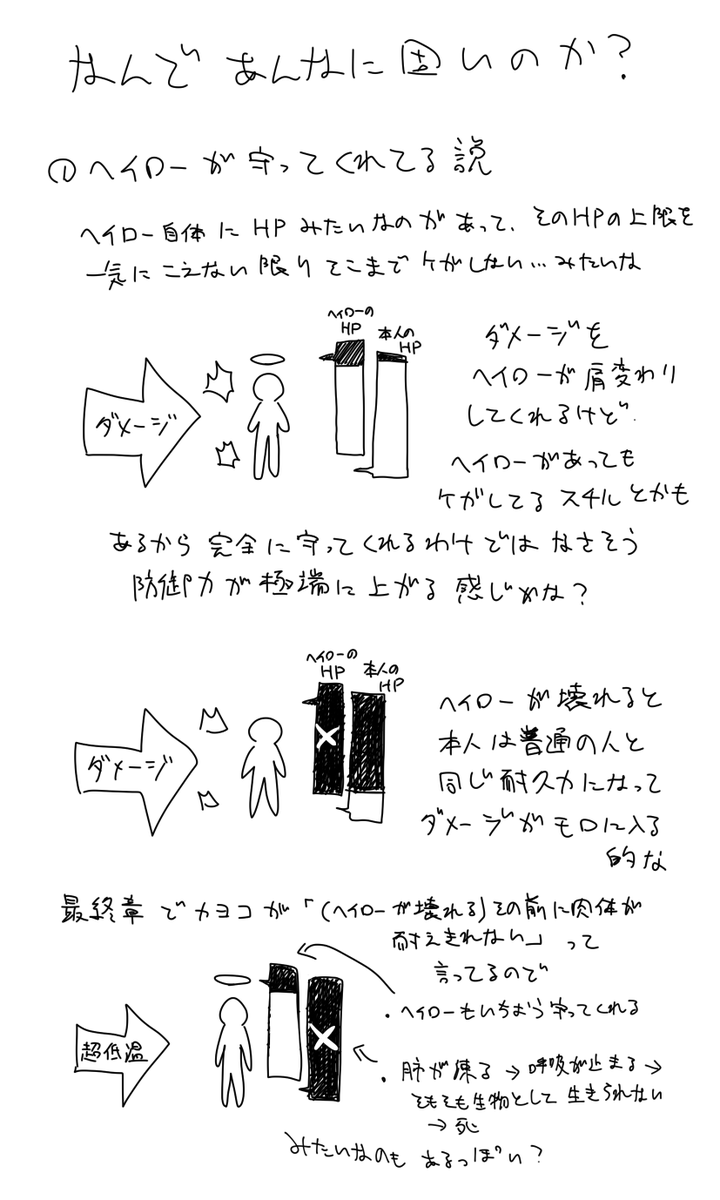 なんで あんなに 固いのか?
① ヘイローが 守ってくれてる 説
ヘイロー自体に HP みたいなのが あって、そのHPの上限を
一気に こえない 限り そこまで ケガしない… みたいな
ヘイローの
HP
本人の
HP
ダメージ
ダメージを
ヘイローが 肩変わり
してくれるけど
ヘイローがあっても
ケガしてる スキルとかも
あるから 完全に 守ってくれるわけでは なさそう
防御力が極端に上がる 感じかな?
ヘイローの
HP
本人の
HP
ダメージ
ヘイローが壊れると
本人は普通の人と
同じ耐久力になって
ダメージがモロに入る
的な
最終章で カヨコが「(ヘイローが壊れる)その前に肉体が
耐えきれない」って
言ってるので
・ヘイローもいちおう守ってくれる
超低温
・肺が凍る → 呼吸が止まる →
そもそも生物として 生きられない
→ 死
みたいなのも あるっぽい?